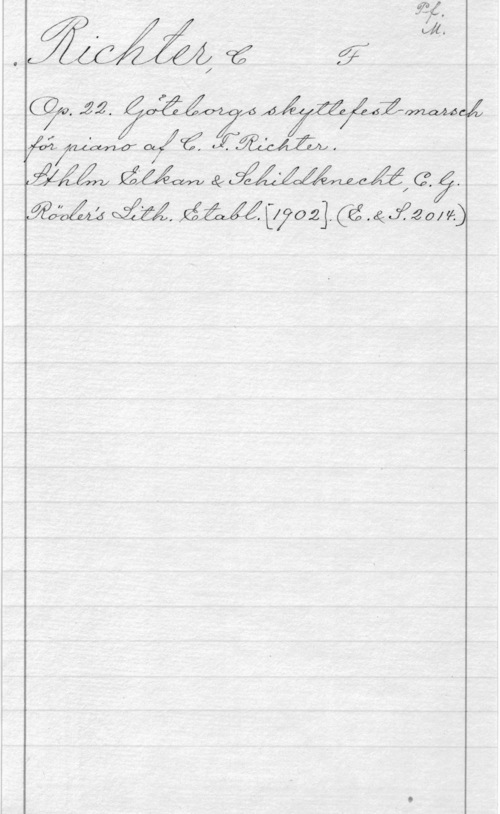 Pf.
M.
Richter, C F
Op. 22. Göteborgs skyttefest-marsch
för piano af C. F. Richter.
Sthlm Elkan & Schildknecht, C. G.
Röder's Lith. Etabl. [1902]. (E. & S. 2014.)